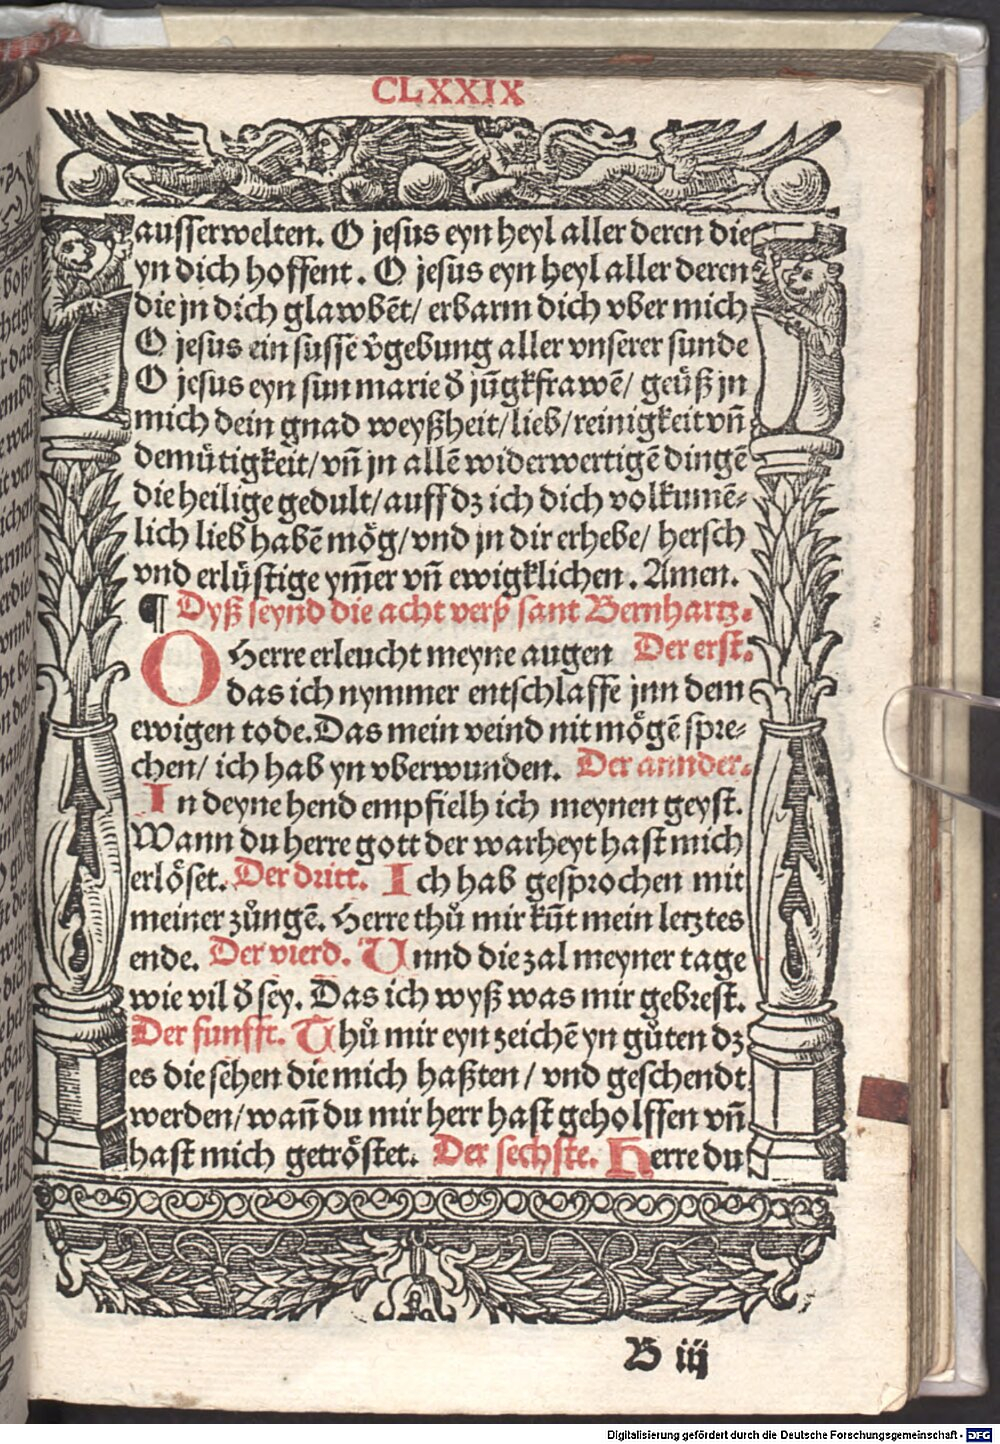 CLXXIX
ausserwelten. O jesus eyn heyl aller deren die
yn dich hoffent. O jesus eyn heyl aller deren
die jn dich glawbēt/ erbarm dich vber mich
O jesus ein sussē v̄gebung aller vnserer sunde
O jesus eyn sun marie đ jūgkfrawē/ geüß jn
mich dein gnad weyßheit/lieb/reinigkeit vñ
demütigkeit/vñ jn allē widerwertigē dingē
die heilige gedult/auff dz ich dich volkumē-
lich lieb habē mög/vnd jn dir erhebe/ hersch
vnd erlüstige ym̄er vñ ewigklichen. Amen.
¶ Dyß seynd die acht verß sant Bernhartz.
O Herre erleucht meyne augen Der erst.
das ich nymmer entschlaffe jnn dem
ewigen tode. Das mein veind nit mögē spre-
chen/ ich hab yn vberwunden. Der annder.
In deyne hend empfielh ich meynen geyst.
Wann du herre gott der warheyt hast mich
erlöset. Der dritt. Ich hab gesprochen mit
meiner zůngē. Herre thů mir kūt mein letztes
ende. Der vierd. Unnd die zal meyner tage
wie vil đ sey. Das ich wyß was mir gebrest.
Der funfft. Thů mir eyn zeichē yn gůten dz
es die sehen die mich haßten/ vnd geschendt
werden/wañ du mir herr hast geholffen vñ
hast mich getröstet. Der sechste. Herre du
B iij
Digitalisierung gefördert durch die Deutsche Forschungsgemeinschaft - DFG